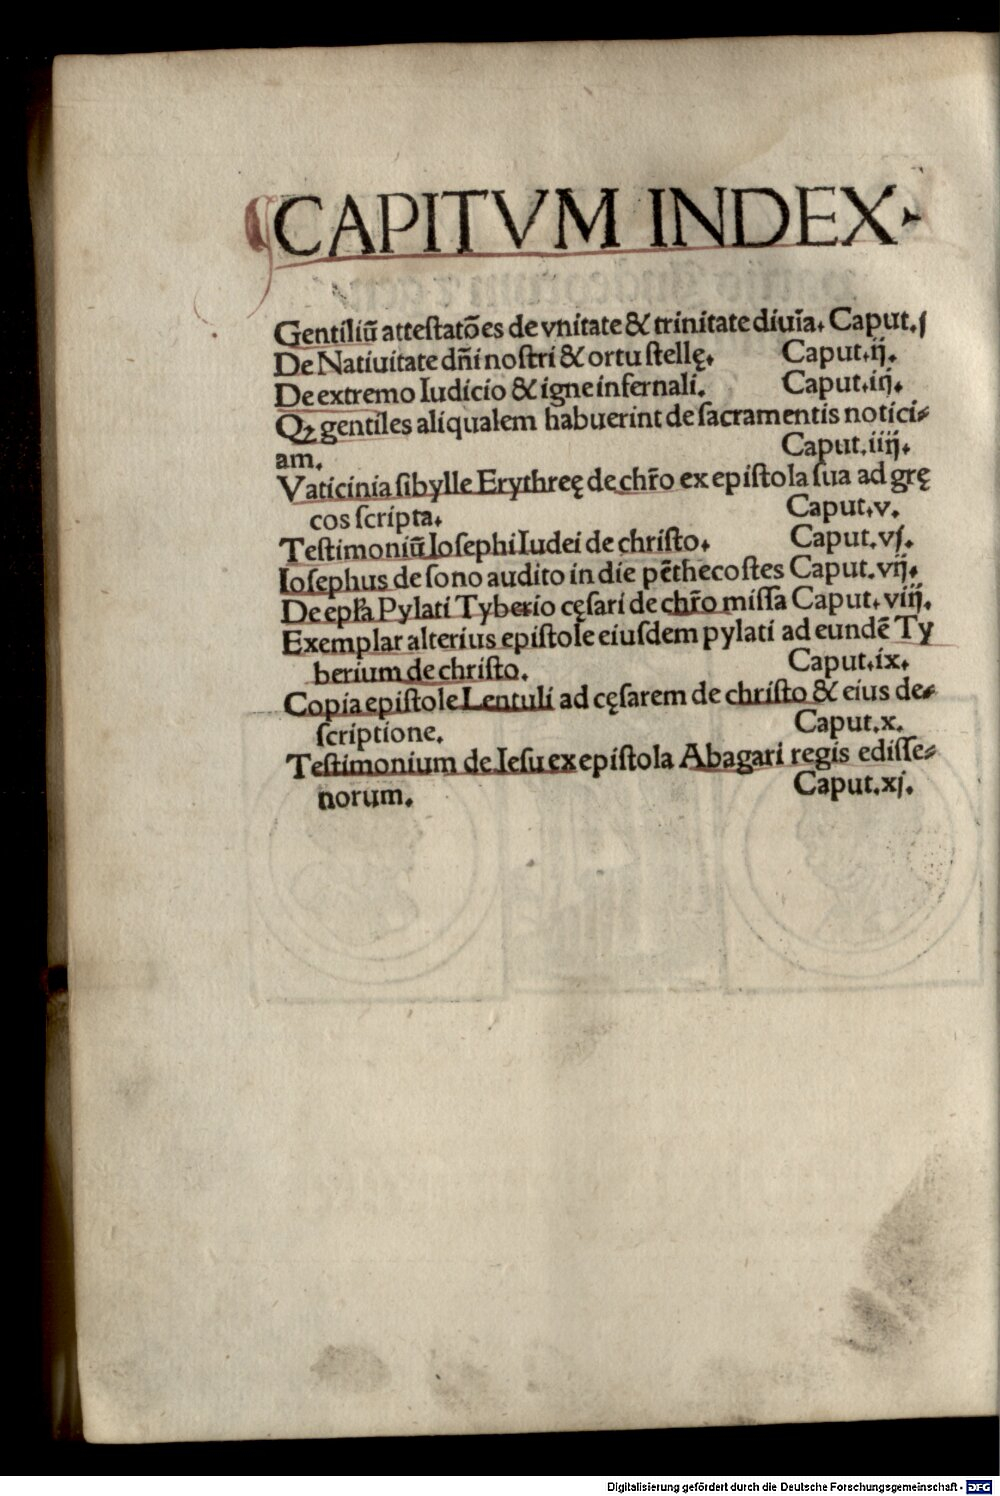 CAPITVM INDEX.
Gentiliū attestatōes de vnitate & trinitate diuīa. Caput.j
De Natiuitate dñi nostri & ortu stellę. Caput.ij.
De extremo Iudicio & igne infernali. Caput.iij.
Qꝫ gentiles aliqualem habuerint de sacramentis notici⸗
am. Caput.iiij.
Vaticinia sibylle Erythreę de chr̄o ex epistola sua ad grę
cos scripta. Caput.v.
Testimoniū Iosephi Iudei de christo. Caput.vj.
Iosephus de sono audito in die pēthecostes Caput.vij.
De epl̄a Pylati Tyberio cęsari de chr̄o missa Caput.viij.
Exemplar alterius epistole eiusdem pylati ad eundē Ty
berium de christo. Caput.ix.
Copia epistole Lentuli ad cęsarem de christo & eius de⸗
scriptione. Caput.x.
Testimonium de Iesu ex epistola Abagari regis edisse⸗
norum. Caput.xj.
Digitalisierung gefördert durch die Deutsche Forschungsgemeinschaft - DFG